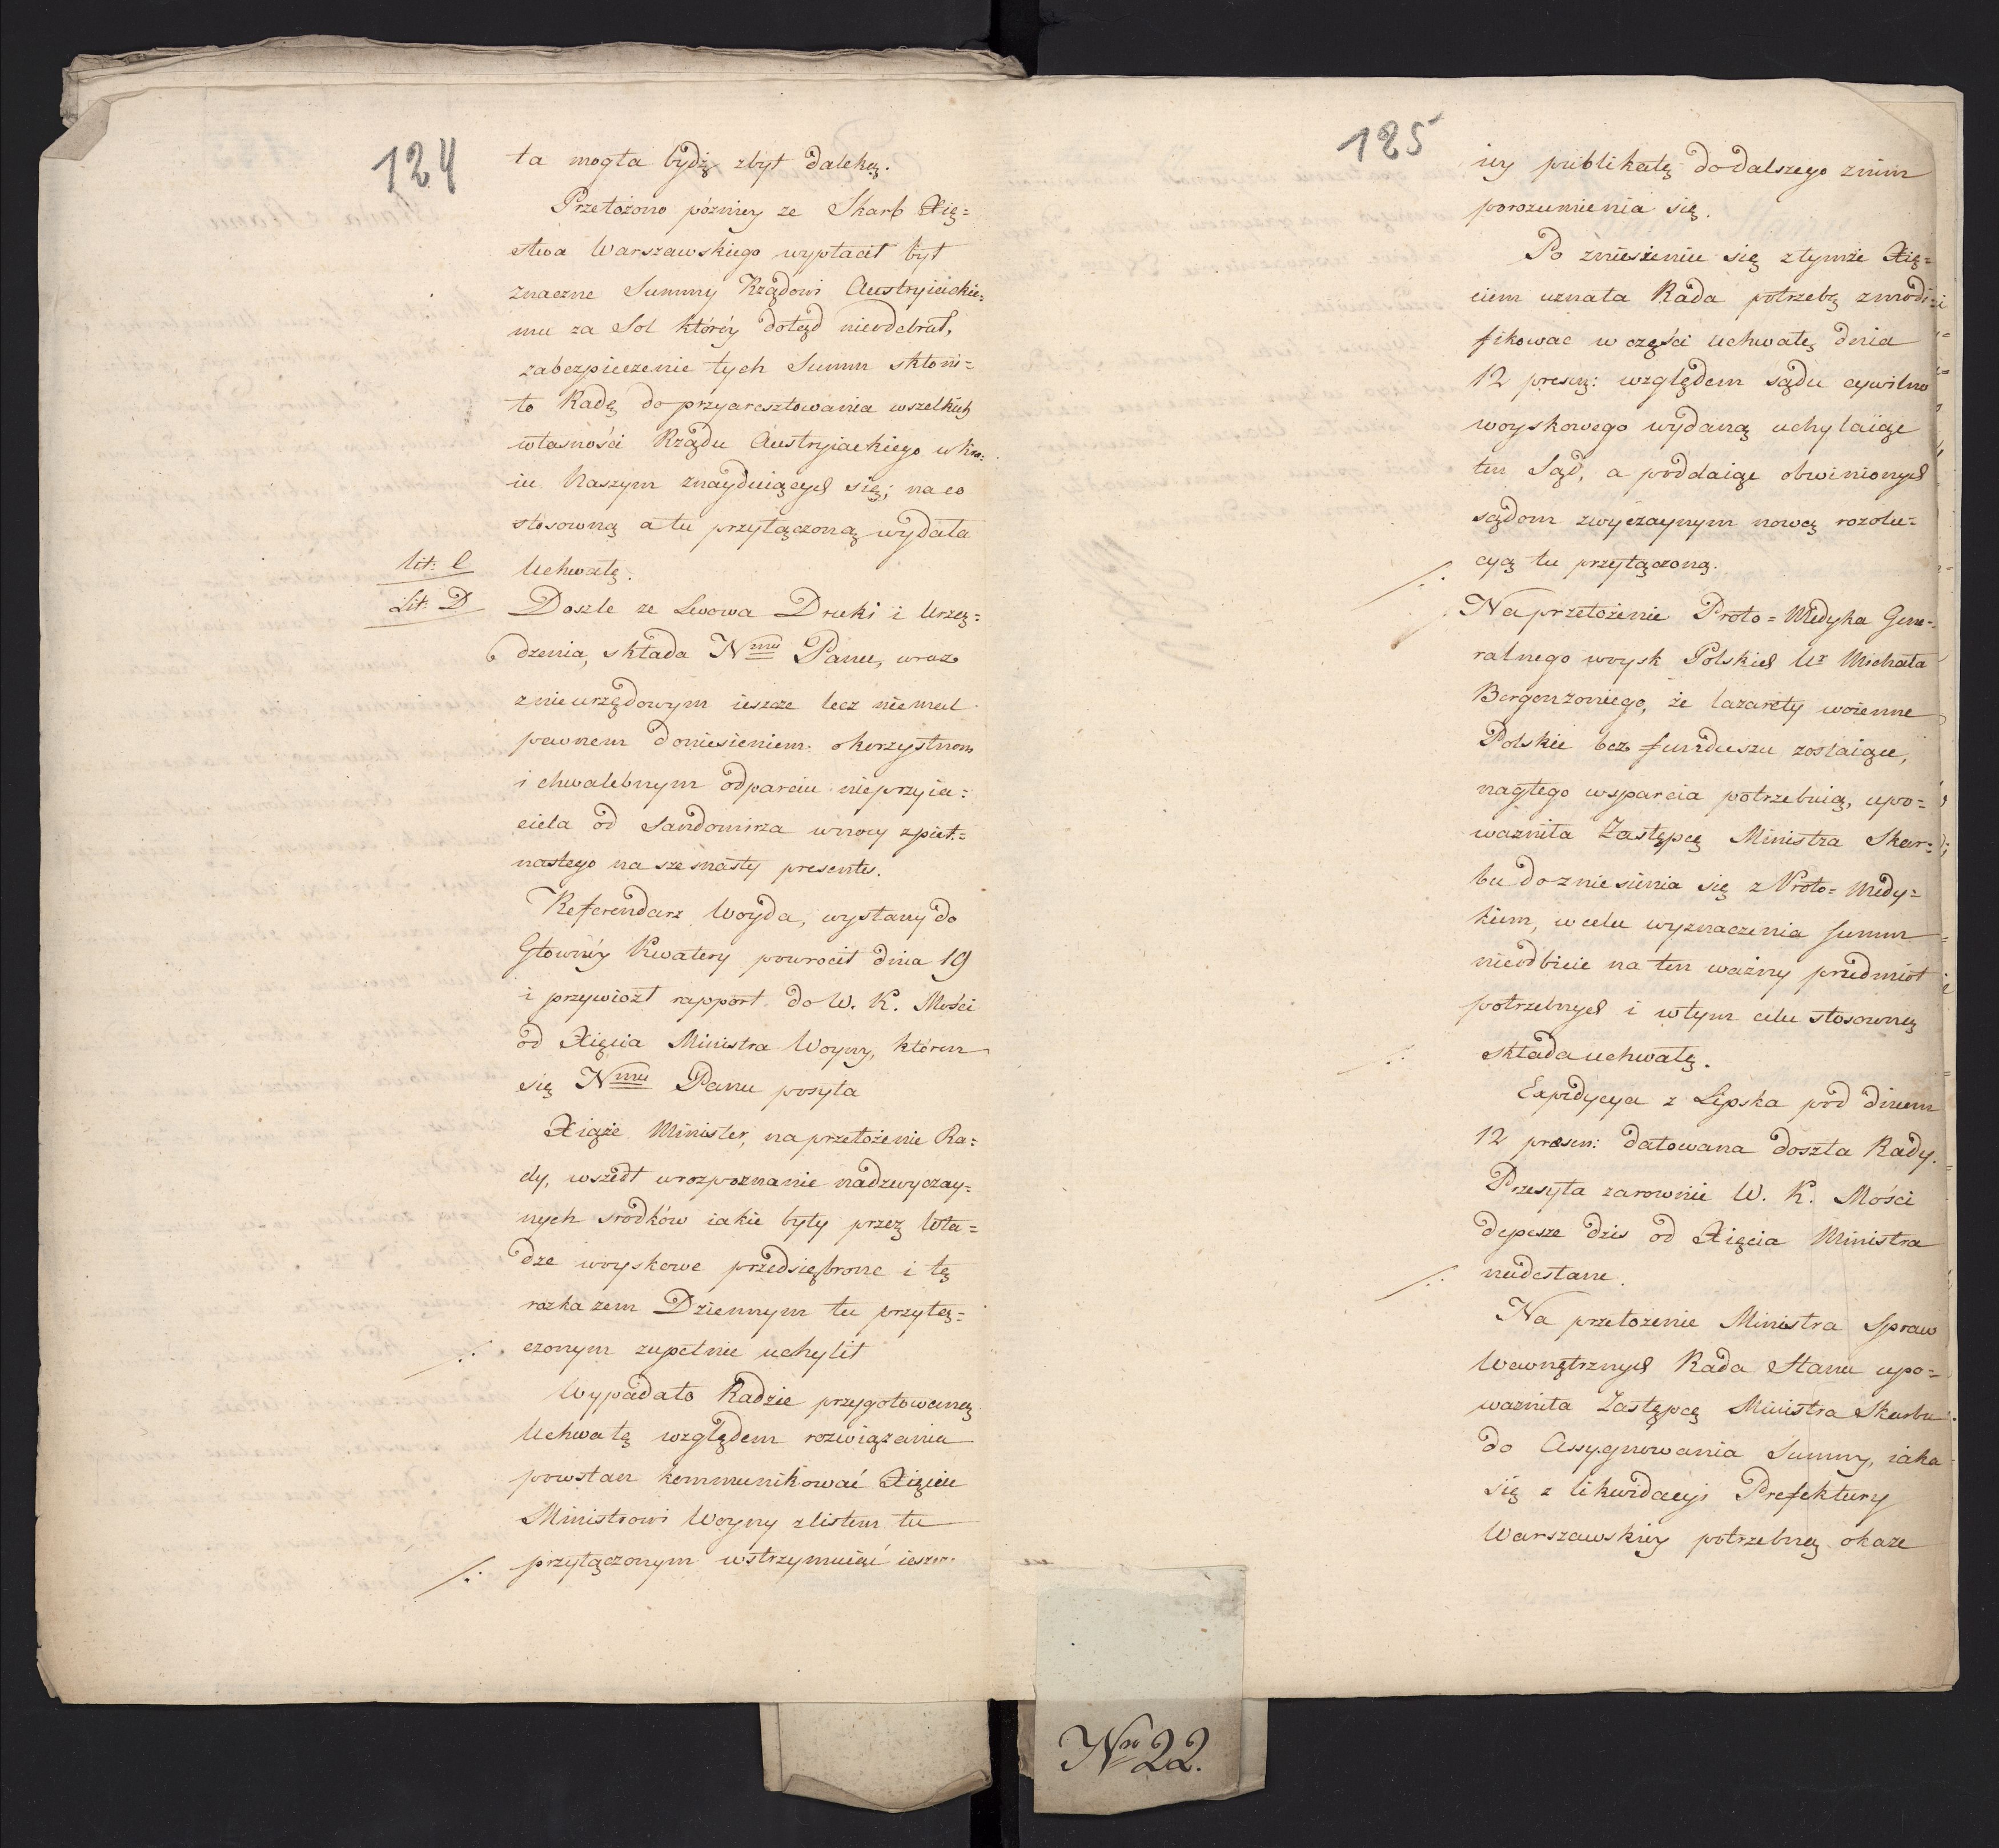 124
ta mogła bydź zbyt daleką.
Przełożono pózniey ze Skarb Xię=
stwa Warszawskiego wypłacił był
znaczne Summy Rządowi Austryiackie=
mu za Sol któréy dotąd nieodebrał,
zabezpieczenie tych Summ skłoni=
ło Radę do przyaresztowania wszelkich
własności Rządu Austryiackiego w Kra=
iu Naszym znayduiących się; na co
stosowną a tu przyłączoną wydała
Lit: C Uchwałę.
Lit: D Doszłe ze Lwowa Druki i Urzą=
dzenia, składa N<sup>mu</sup> Panu, wraz
z nieurzędowym ieszcze lecz niemal
pewnem doniesieniem o korzystnem
i chwalebnym odparciu nieprzyia=
ciela od Sandomirza w nocy z piet=
nastego na szesnasty presentis.
Referendarz Woyda, wysłany do
Główney Kwatery powrocił dnia 19
i przywiozł rapport do W. K. Mości
od Xięcia Ministra Woyny, którem
się N<sup>mu</sup> Panu posyła
Xiąże Minister, na przełożenie Ra=
dy, wszedł w rozpoznanie nadzwyczay=
nych srodków iakie były przez Wła=
dze woyskowe przedsięбrone i tę
rozkazem Dziennym tu przyłą=
./. czonym zupełnie uchylił
Wypadało Radzie przygotowaną
Uchwałę względem rozwiązania
powstań kommunikować Xięciu
Ministrowi Woyny z listem tu
./. przyłączonym wstrzymuiąc ieszcze
125
iey publikatę do dalszego z nim
porozumienia się.
Po zniesieniu się z tymże Xię=
ciem uznała Rada potrzebę zmodi=
fikować w części uchwałę dnia
12 presen: względem sądu cywilno
woyskowego wydaną uchylaiąc
ten Sąd, a poddaiąc obwinionych
sądom zwyczaynym nową rozolu=
./. cyą tu przyłączoną.
Na przełożenie Proto=Medyka Gene=
ralnego woysk Polskich Ur Michała
Bergonzoniego, że lazarety woienne
Polskie bez funduszu zostaiące,
nagłego wsparcia potrzebuią, upo=
ważniła Zastępcę Ministra Skar=
bu do zniesienia się z Proto=Medy=
kiem, w celu wyznaczenia Summ
nieodbicie na ten ważny przedmiot
potrzebnych i w tym celu stosowną
./. składa uchwałę.
Expedycya z Lipska pod dniem
12 presen: datowana doszła Rady.
Przesyła zarownie W. K. Mości
depesze dziś od Xięcia Ministra
./. nadesłane.
Na przełożenie Ministra Spraw
Wewnętrznych Rada Stanu upo=
ważniła Zastępcę Ministra Skarbu
do Assygnowania Summy, iaka
się z likwidacyi Prefektury
Warszawskiey potrzebną okaże
Nro 22.